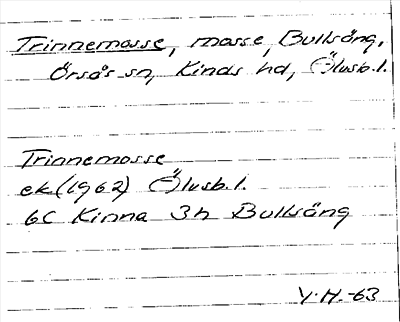 Trinnemosse, mosse, Bullsäng,
Örsås sn, Kinds hd, Älvsb.l.
Trinnemosse
ek (1962) Älvsb.l.
6C Kinna 3h Bullsäng
Y.H.-63